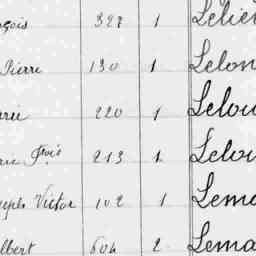 çois 327 1 Lelièv
Pierre 130 1 Lelon
arie 220 1 Lelou
rie Frçois 213 1 Lelou
seph Victor 102 1 Lema
lbert 604 2 Lema